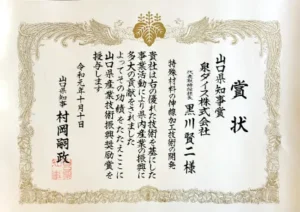 賞状
山口県知事賞
泉ダイス株式会社
代表取締役社長 黒川賢二様
特殊材料の伸線加工技術の開発
貴社は右の優れた技術を基にした
事業活動により県内産業の振興に
多大の貢献をされました
よってその功績をたたえここに
山口県産業技術振興奨励賞を
授与します
令和元年十月十日
山口県知事 村岡嗣政